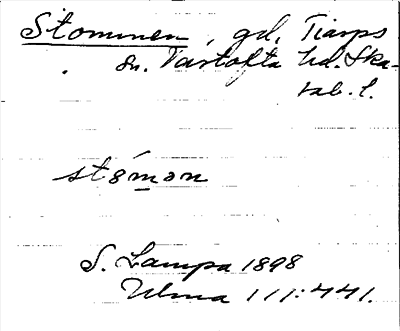 Stommen, gd, Tiarps
sn. Vartofta hd. Ska-
rab. l.
stómən
S. Lampa 1898
Ulma 111:441.